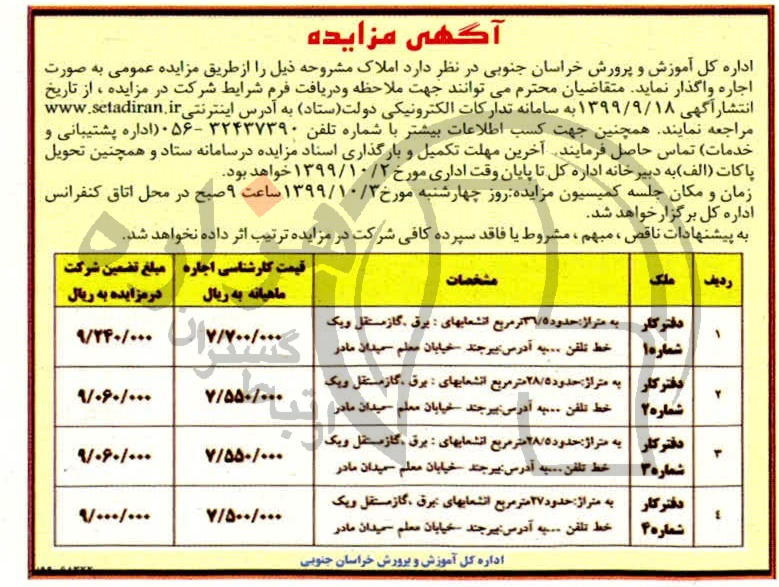 آگهی مزایده
اداره کل آموزش و پرورش خراسان جنوبی در نظر دارد املاک مشروحه ذیل را ازطریق مزایده عمومی به صورت
اجاره واگذار نماید. متقاضیان محترم می توانند جهت ملاحظه ودریافت فرم شرایط شرکت در مزایده ، از تاریخ
انتشارآگهی ۱۳۹۹/۹/۱۸به سامانه تدارکات الکترونیکی دولت(ستاد) به آدرس اینترنتیwww.setadiran.ir
مراجعه نمایند. همچنین جهت کسب اطلاعات بیشتر با شماره تلفن ۳۲۴۳۷۳۹۰ -۰۵۶(اداره پشتیبانی و
خدمات) تماس حاصل فرمایند. آخرین مهلت تکمیل و بارگذاری اسناد مزایده درسامانه ستاد و همچنین تحویل
پاکات (الف)به دبیرخانه اداره کل تا پایان وقت اداری مورخ ۱۳۹۹/۱۰/۲خواهد بود.
زمان و مکان جلسه کمیسیون مزایده:روز چهارشنبه مورخ۱۳۹۹/۱۰/۳ساعت ۹صبح در محل اتاق کنفرانس
اداره کل برگزار خواهد شد.
به پیشنهادات ناقص ، مبهم ، مشروط یا فاقد سپرده کافی شرکت در مزایده ترتیب اثر داده نخواهد شد.
ردیف ملک مشخصات قیمت کارشناسی اجاره ماهیانه به ریال مبلغ تضمین شرکت درمزایده به ریال
۱ دفترکار شماره۱ به متراژ:حدود۳۶/۵مترمربع انشعابهای : برق ،گازمستقل ویک ۷/۷۰۰/۰۰۰ ۹/۲۴۰/۰۰۰
خط تلفن ...به آدرس:بیرجند –خیابان معلم –میدان مادر
۲ دفترکار شماره۲ به متراژ:حدود۲۸/۵مترمربع انشعابهای : برق ،گازمستقل ویک ۷/۵۵۰/۰۰۰ ۹/۰۶۰/۰۰۰
خط تلفن ...به آدرس:بیرجند –خیابان معلم –میدان مادر
۳ دفترکار شماره۳ به متراژ:حدود۲۸/۵مترمربع انشعابهای : برق ،گازمستقل ویک ۷/۵۵۰/۰۰۰ ۹/۰۶۰/۰۰۰
خط تلفن...به آدرس:بیرجند –خیابان معلم –میدان مادر
۴ دفترکار شماره۴ به متراژ:حدود۲۷مترمربع انشعابهای :برق ،گازمستقل ویک ۷/۵۰۰/۰۰۰ ۹/۰۰۰/۰۰۰
خط تلفن ...به آدرس:بیرجند –خیابان معلم –میدان مادر
اداره کل آموزش و پرورش خراسان جنوبی